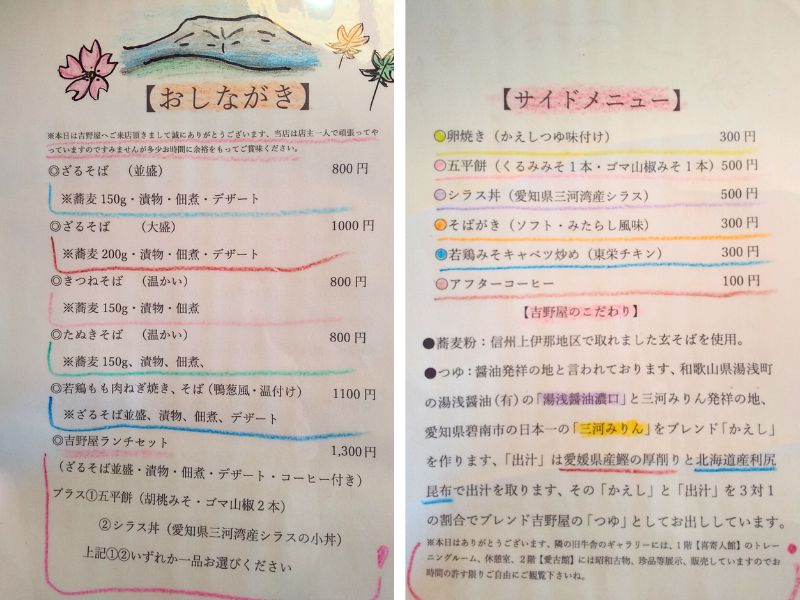 【おしながき】
※本日は吉野屋へご来店頂きまして誠にありがとうございます、当店は店主一人で頑張ってや
っていますのですみませんが多少お時間に合格をもってご賞味ください。
◎ざるそば （並盛） 800円
※蕎麦150g・漬物・佃煮・デザート
◎ざるそば （大盛） 1000円
※蕎麦200g・漬物・佃煮・デザート
◎きつねそば （温かい） 800円
※蕎麦150g・漬物・佃煮
◎たぬきそば （温かい） 800円
※蕎麦150g、漬物、佃煮、
◎若鶏もも肉ねぎ焼き、そば（鴨葱風・温付け） 1100円
※ざるそば並盛、漬物、佃煮、デザート
◎吉野屋ランチセット 1,300円
（ざるそば並盛・漬物・佃煮・デザート・コーヒー付き）
プラス①五平餅（胡桃みそ・ゴマ山椒2本）
②シラス丼（愛知県三河湾産シラスの小丼）
上記①②いずれか一品お選びください
【サイドメニュー】
卵焼き（かえしつゆ味付け） 300円
五平餅（くるみみそ1本・ゴマ山椒みそ1本）500円
シラス丼（愛知県三河湾産シラス） 500円
そばがき（ソフト・みたらし風味） 300円
若鶏みそキャベツ炒め（東栄チキン） 300円
アフターコーヒー 100円
【吉野屋のこだわり】
●蕎麦粉：信州上伊那地区で取れました玄そばを使用。
●つゆ：醤油発祥の地と言われております、和歌山県湯浅町
の湯浅醤油（有）の「湯浅醤油濃口」と三河みりん発祥の地、
愛知県碧南市の日本一の「三河みりん」をブレンド「かえし」
を作ります、「出汁」は愛媛県産鰹の厚削りと北海道産利尻
昆布で出汁を取ります、その「かえし」と「出汁」を3対1
の割合でブレンド吉野屋の「つゆ」としてお出ししています。
※本日はありがとうございます、隣の旧牛舎のギャラリーには、1階【喜寄人館】のトレー
ニングルーム、休憩室、2階【愛古館】には昭和古物、珍品等展示、販売していますのでお
時間の許す限りご自由にご観覧下さいね。